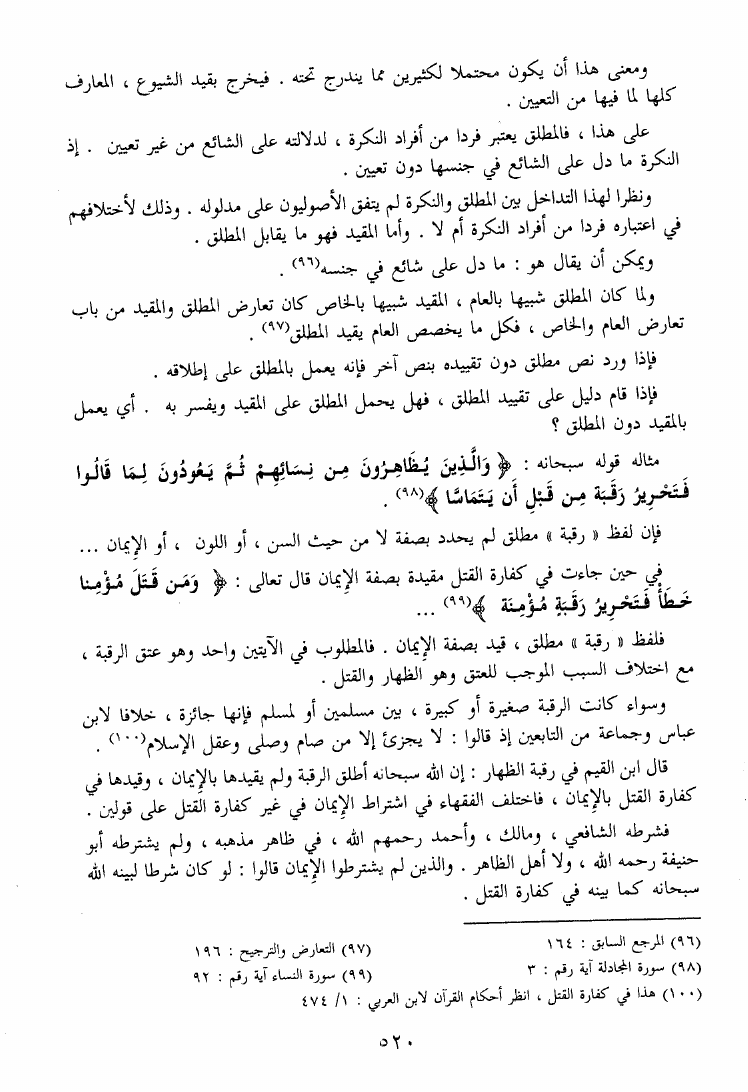 ومعنى هذا أن يكون محتملا لكثيرين مما يندرج تحته . فيخرج بقيد الشيوع ، المعارف
كلها لما فيها من التعيين .
على هذا ، فالمطلق يعتبر فردا من أفراد النكرة ، لدلالته على الشائع من غير تعيين . إذ
النكرة ما دل على الشائع في جنسها دون تعيين .
ونظرا لهذا التداخل بين المطلق والنكرة لم يتفق الأصوليون على مدلوله . وذلك لأختلافهم
في اعتباره فردا من أفراد النكرة أم لا . وأما المقيد فهو ما يقابل المطلق .
ويمكن أن يقال هو : ما دل على شائع في جنسه(٩٦) .
ولما كان المطلق شبيها بالعام ، المقيد شبيها بالخاص كان تعارض المطلق والمقيد من باب
تعارض العام والخاص ، فكل ما يخصص العام يقيد المطلق(٩٧) .
فإذا ورد نص مطلق دون تقييده بنص آخر فإنه يعمل بالمطلق على إطلاقه .
فإذا قام دليل على تقييد المطلق ، فهل يحمل المطلق على المقيد ويفسر به . أي يعمل
بالمقيد دون المطلق ؟
مثاله قوله سبحانه : ﴿ وَالَّذِينَ يُظَاهِرُونَ مِن نِسَائِهِمْ ثُمَّ يَعُودُونَ لِمَا قَالُوا
فَتَحْرِيرُ رَقَبَة مِن قَبْلِ أَن يَتَمَاسَّا ﴾(٩٨) .
فإن لفظ « رقبة » مطلق لم يحدد بصفة لا من حيث السن ، أو اللون ، أو الإيمان ...
في حين جاءت في كفارة القتل مقيدة بصفة الإيمان قال تعالى : ﴿ وَمَن قَتَلَ مُؤْمِنا
خَطَأً فَتَحْرِيرُ رَقَبَةٍ مُؤْمِنَة ﴾(٩٩) ...
فلفظ « رقبة » مطلق ، قيد بصفة الإيمان . فالمطلوب في الآيتين واحد وهو عتق الرقبة ،
مع اختلاف السبب الموجب للعتق وهو الظهار والقتل .
وسواء كانت الرقبة صغيرة أو كبيرة ، بين مسلمين أو لمسلم فإنها جائزة ، خلافا لابن
عباس وجماعة من التابعين إذ قالوا : لا يجزئ إلا من صام وصلى وعقل الإسلام(١٠٠) .
قال ابن القيم في رقبة الظهار : إن الله سبحانه أطلق الرقبة ولم يقيدها بالإيمان ، وقيدها في
كفارة القتل بالإيمان ، فاختلف الفقهاء في اشتراط الإيمان في غير كفارة القتل على قولين .
فشرطه الشافعي ، ومالك ، وأحمد رحمهم الله ، في ظاهر مذهبه ، ولم يشترطه أبو
حنيفة رحمه الله ، ولا أهل الظاهر . والذين لم يشترطوا الإيمان قالوا : لو كان شرطا لبينه الله
سبحانه كما بينه في كفارة القتل .
(٩٦) المرجع السابق : ١٦٤ (٩٧) التعارض والترجيح : ١٩٦
(٩٨) سورة المجادلة آية رقم : ٣ (٩٩) سورة النساء آية رقم : ٩٢
(١٠٠) هذا في كفارة القتل ، انظر أحكام القرآن لابن العربي : ١/ ٤٧٤
٥٢٠